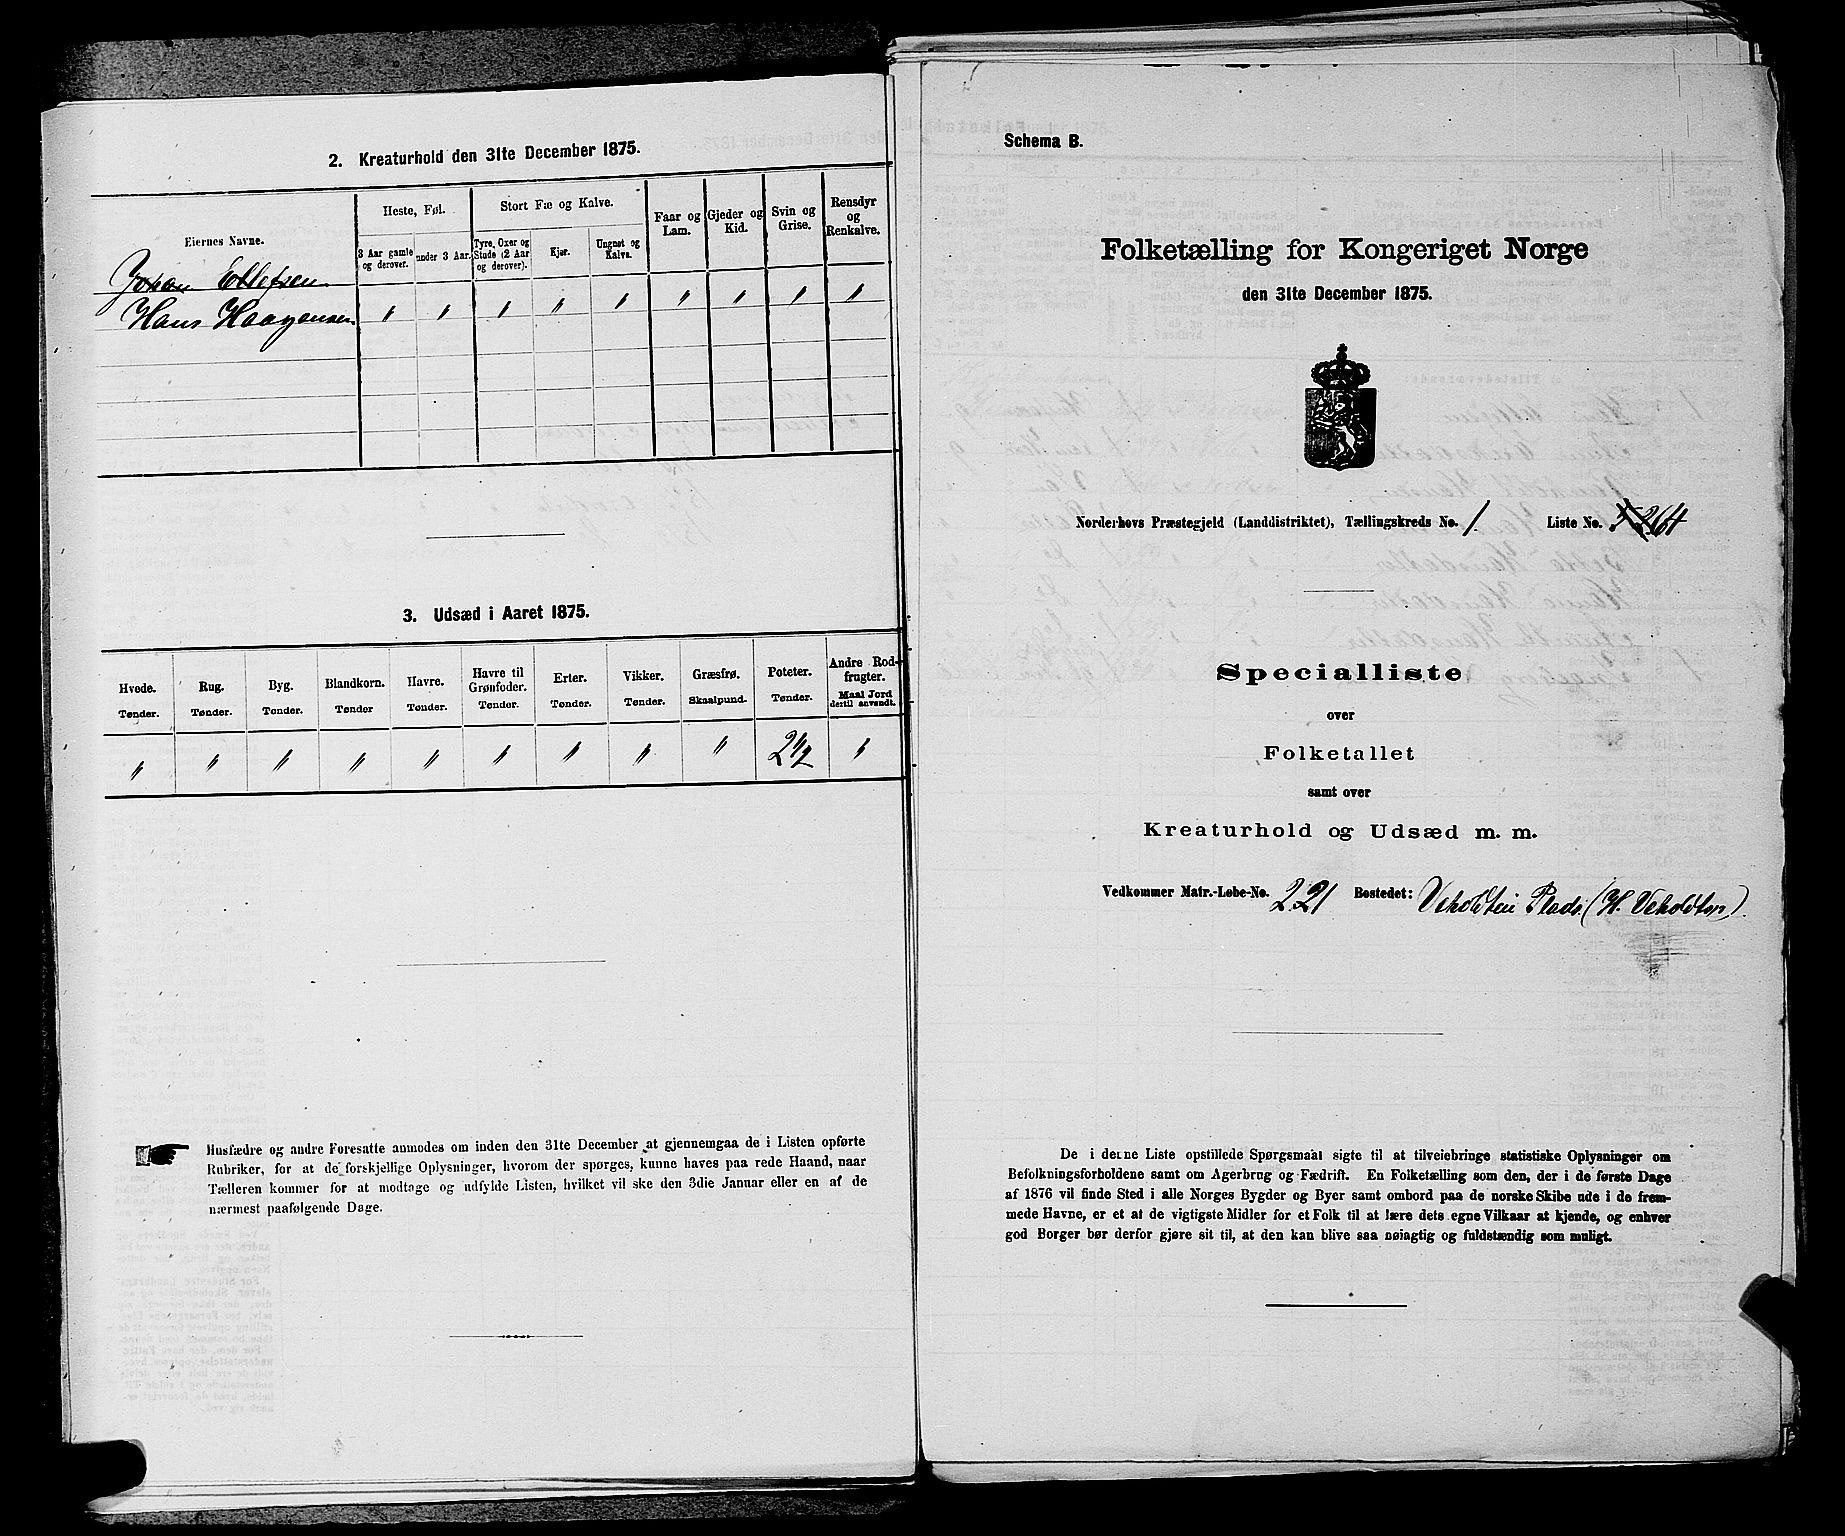 2. Kreaturhold den 31te December 1875.
Eiernes Navne.
Heste, Føl.
Stort Fæ og Kalve.
Faar og Lam.
Gjeder og Kid.
Svin og Grise.
Rensdyr og Renkalve.
3 Aar gamle og derover.
under 3 Aar.
Tyre, Oxer og Stude (2 Aar og derover).
Kjør.
Ungnøt og Kalve.
Johan Ellefsen
Hans Haagensen
" " " " " " " " "
3. Udsæd i Aaret 1875.
Hvede. Rug. Byg. Blandkorn. Havre. Havre til Grønfoder. Erter. Vikker. Græsfrø. Poteter. Andre Rodfrugter.
Tønder. Tønder. Tønder. Tønder Tønder. Tønder. Tønder. Tønder. Skaalpund. Tønder. Maal Jord dertil anvendt.
" " " " " " " " " 2 1/2 "
Husfædre og andre Foresatte anmodes om inden den 31te December at gjennemgaa de i Listen opførte
Rubriker, for at de forskjellige Oplysninger, hvorom der spørges, kunne haves paa rede Haand, naar
Tælleren kommer for at modtage og udfylde Listen, hvilket vil ske den 3die Januar eller en af de
nærmest paafølgende Dage.
Schema B.
Folketælling for Kongeriget Norge
den 31te December 1875.
Norderhovs Præstegjeld (Landdistriktet), Tællingskreds No. 1 Liste No. 264
Specialliste
over
Folketallet
samt over
Kreaturhold og Udsæd m. m.
Vedkommer Matr.-Løbe-No. 221 Bostedet: Plads (H.
De i denne Liste opstillede Spørgsmaal sigte til at tilveiebringe statistiske Oplysninger om
Befolkningsforholdene samt om Agerbrug og Fædrift. En Folketælling som den, der i de første Dage
af 1876 vil finde Sted i alle Norges Bygder og Byer samt ombord paa de norske Skibe ude i de frem-
mede Havne, er et at de vigtigste Midler for et Folk til at lære dets egne Vilkaar at kjende, og enhver
god Borger bør derfor gjøre sit til, at den kan blive saa nøiagtig og fuldstændig som muligt.